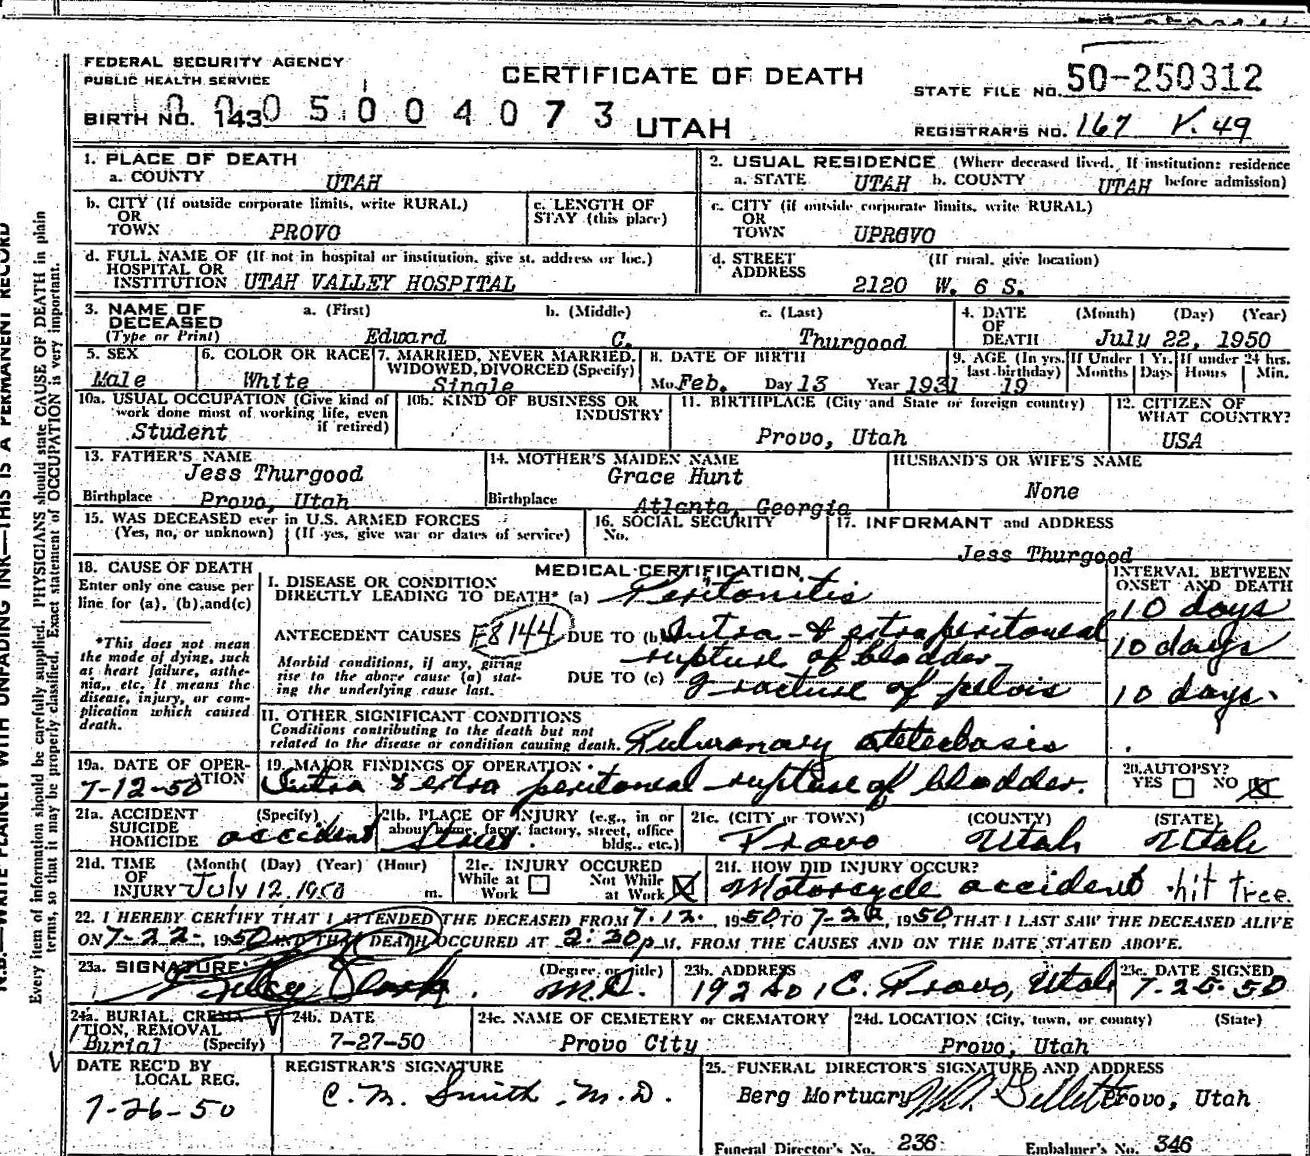 FEDERAL SECURITY AGENCY
PUBLIC HEALTH SERVICE
CERTIFICATE OF DEATH
STATE FILE NO. 50-250312
BIRTH NO. 143 0005004073
UTAH
REGISTRAR'S NO. 167 V. 49
1. PLACE OF DEATH
a. COUNTY UTAH
2. USUAL RESIDENCE (Where deceased lived. If institution: residence before admission)
a. STATE UTAH b. COUNTY UTAH
b. CITY (If outside corporate limits, write RURAL)
OR
TOWN PROVO
c. LENGTH OF
STAY (this place)
c. CITY (if outside corporate limits, write RURAL)
OR
TOWN UPROVO
d. FULL NAME OF (If not in hospital or institution, give st. address or loc.)
HOSPITAL OR
INSTITUTION UTAH VALLEY HOSPITAL
d. STREET (If rural, give location)
ADDRESS 2120 W. 6 S.
3. NAME OF DECEASED
(Type or Print)
a. (First) b. (Middle) c. (Last)
Edward C. Thurgood
4. DATE OF DEATH (Month) (Day) (Year)
July 22, 1950
5. SEX
Male
6. COLOR OR RACE
White
7. MARRIED, NEVER MARRIED,
WIDOWED, DIVORCED (Specify)
Single
8. DATE OF BIRTH
Mo. Feb. Day 13 Year 1931
9. AGE (In yrs. last birthday) 19
If Under 1 Yr. Months Days
If under 24 hrs. Hours Min.
10a. USUAL OCCUPATION (Give kind of
work done most of working life, even
if retired)
Student
10b. KIND OF BUSINESS OR
INDUSTRY
11. BIRTHPLACE (City and State or foreign country)
Provo, Utah
12. CITIZEN OF
WHAT COUNTRY?
USA
13. FATHER'S NAME
Jess Thurgood
Birthplace Provo, Utah
14. MOTHER'S MAIDEN NAME
Grace Hunt
Birthplace Atlanta, Georgia
HUSBAND'S OR WIFE'S NAME
None
15. WAS DECEASED ever in U.S. ARMED FORCES
(Yes, no, or unknown) (If yes, give war or dates of service)
16. SOCIAL SECURITY
No.
17. INFORMANT and ADDRESS
Jess Thurgood
18. CAUSE OF DEATH
Enter only one cause per
line for (a), (b), and (c)
*This does not mean
the mode of dying, such
as heart failure, asthe-
nia, etc. It means the
disease, injury, or com-
plication which caused
death.
MEDICAL CERTIFICATION
INTERVAL BETWEEN
ONSET AND DEATH
I. DISEASE OR CONDITION
DIRECTLY LEADING TO DEATH* (a) Peritonitis 10 days
ANTECEDENT CAUSES E8144 DUE TO (b) Intra - & extraperitoneal
rupture of bladder 10 days
Morbid conditions, if any, giving
rise to the above cause (a) stat-
ing the underlying cause last.
DUE TO (c) Fracture of pelvis 10 days.
II. OTHER SIGNIFICANT CONDITIONS
Conditions contributing to the death but not
related to the disease or condition causing death. Pulmonary atelectasis
19a. DATE OF OPER-
ATION
7-12-50
19. MAJOR FINDINGS OF OPERATION
Intra & extra peritoneal rupture of bladder.
20. AUTOPSY?
YES NO
21a. ACCIDENT (Specify)
SUICIDE
HOMICIDE accident
21b. PLACE OF INJURY (e.g., in or
about home, farm, factory, street, office
bldg., etc.)
Street
21c. (CITY or TOWN) (COUNTY) (STATE)
Provo Utah Utah
21d. TIME (Month) (Day) (Year) (Hour)
OF
INJURY July 12, 1950 m.
21e. INJURY OCCURED
While at Work Not While at Work
21f. HOW DID INJURY OCCUR?
Motorcycle accident - hit tree
22. I HEREBY CERTIFY THAT I ATTENDED THE DECEASED FROM 7.12. 1950, TO 7-22, 1950, THAT I LAST SAW THE DECEASED ALIVE
ON 7-22-, 1950 AND THAT DEATH OCCURED AT 2:30 P.M. FROM THE CAUSES AND ON THE DATE STATED ABOVE.
23a. SIGNATURE: Clark (Degree, or title) M.D.
23b. ADDRESS
Provo, Utah
23c. DATE SIGNED
7-25-50
24a. BURIAL, CREMA-
TION, REMOVAL
(Specify)
Burial
24b. DATE
7-27-50
24c. NAME OF CEMETERY or CREMATORY
Provo City
24d. LOCATION (City, town, or county) (State)
Provo, Utah
DATE REC'D BY
LOCAL REG.
7-26-50
REGISTRAR'S SIGNATURE
C. M. Smith M.D.
25. FUNERAL DIRECTOR'S SIGNATURE AND ADDRESS
Berg Mortuary Gillett Provo, Utah
Funeral Director's No. 236 Embalmer's No. 346
N.B.—WRITE PLAINLY WITH UNFADING INK—THIS IS A PERMANENT RECORD
Every item of information should be carefully supplied. PHYSICIANS should state CAUSE OF DEATH in plain
terms, so that it may be properly classified. Exact statement of OCCUPATION is very important.